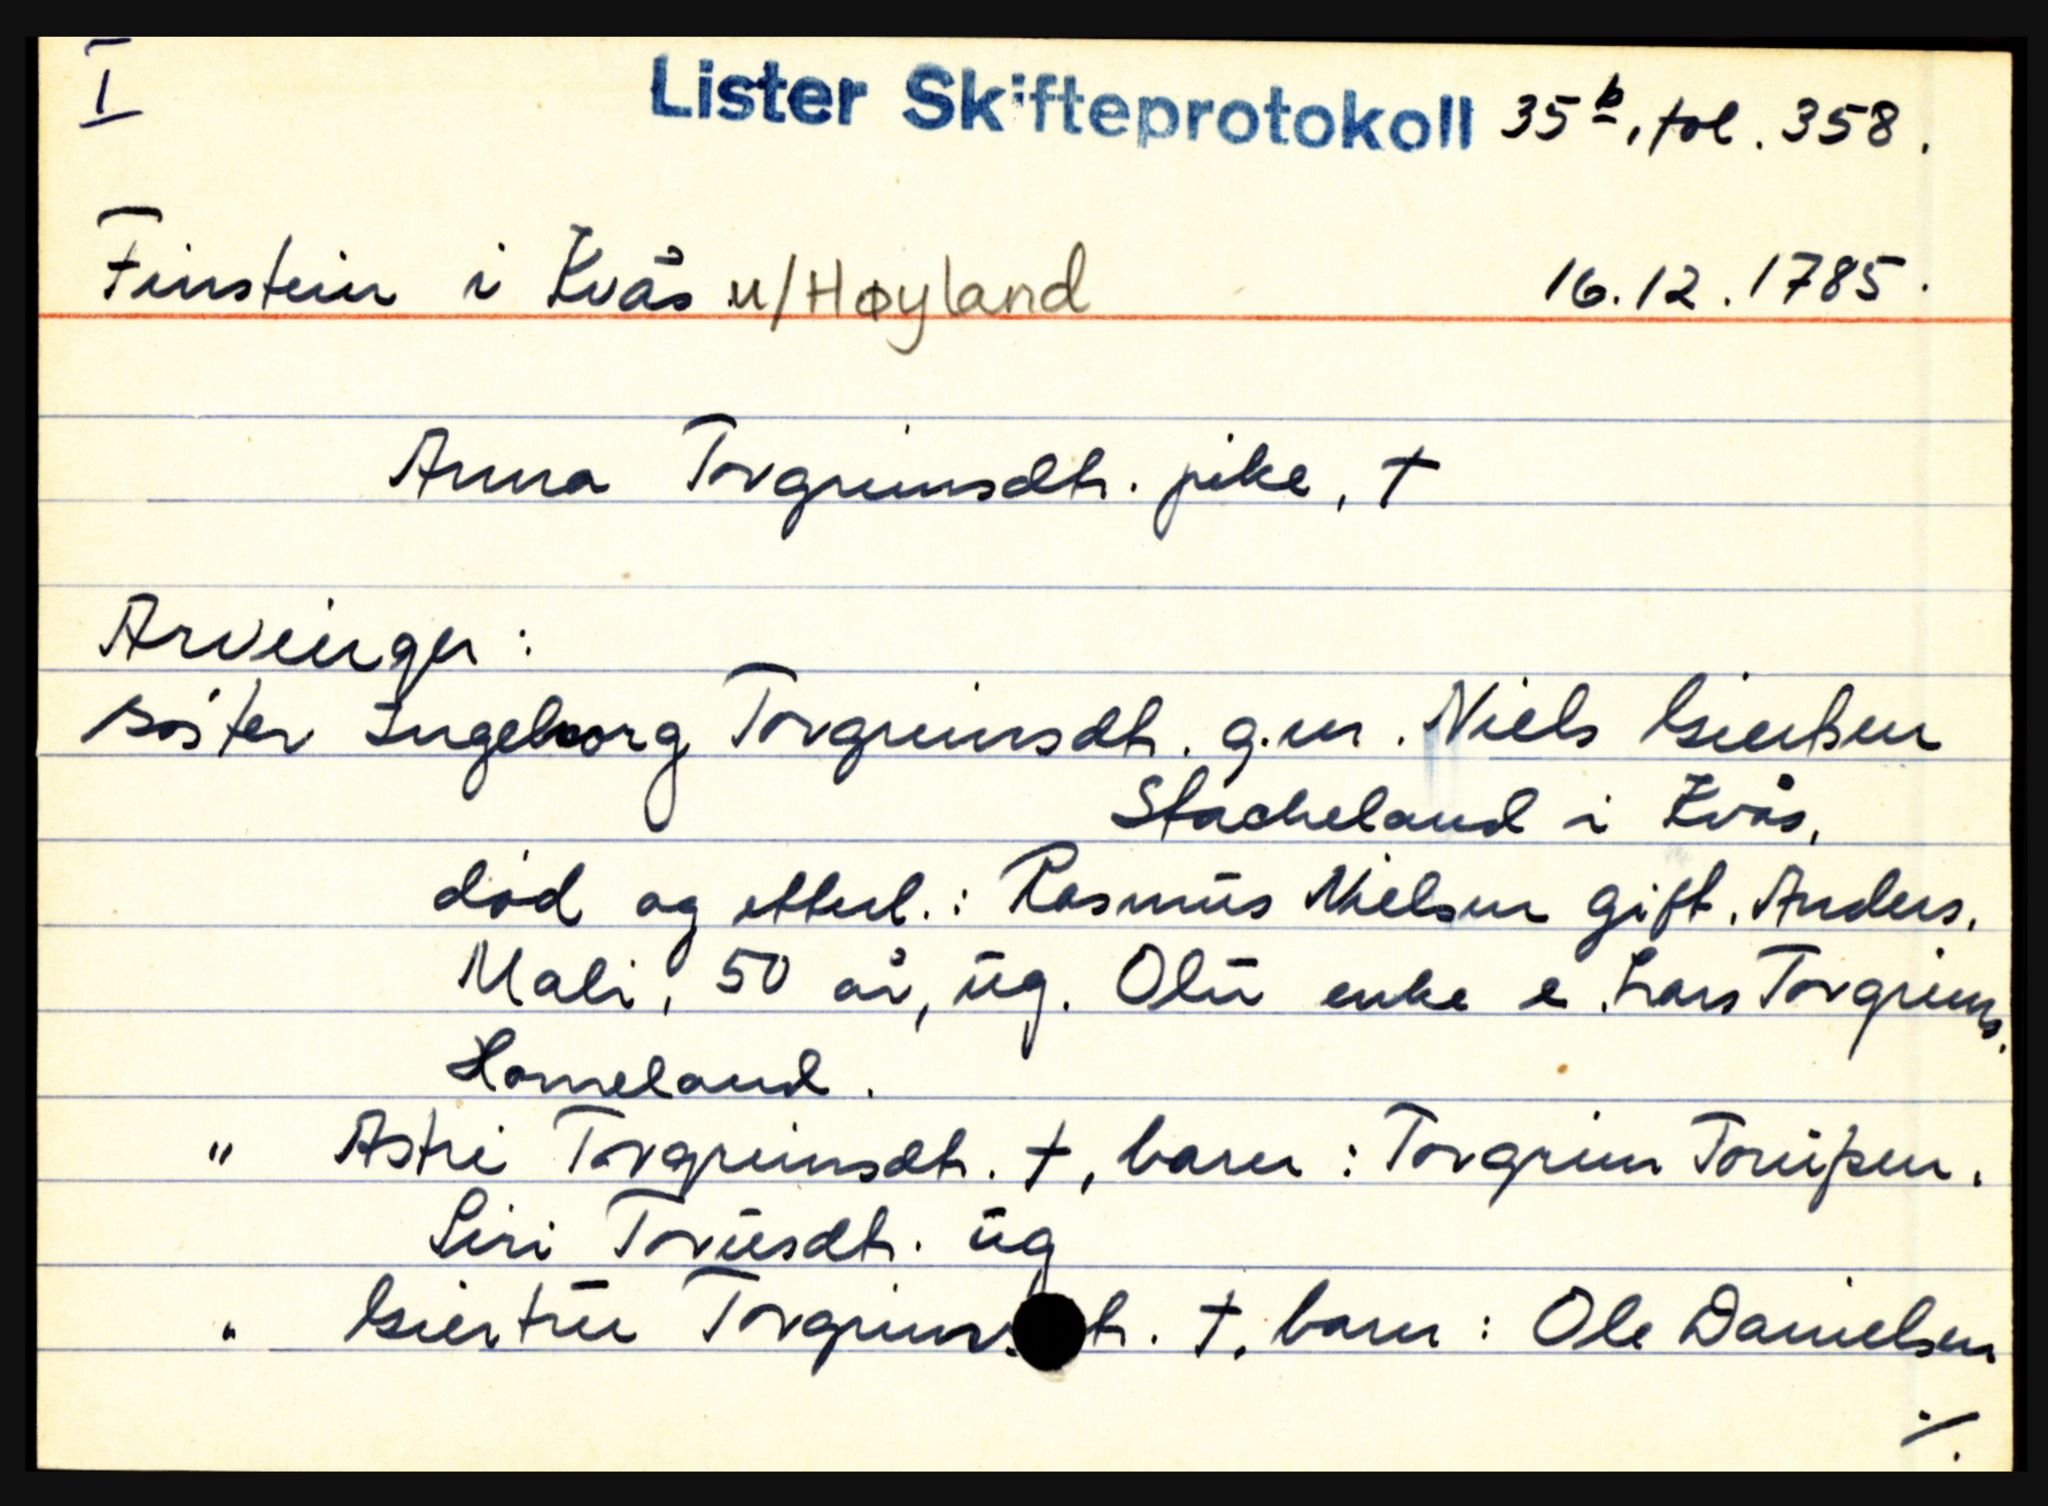 I
Lister Skifteprotokoll 35b, fol. 358.
Finstein i Kvås u/Høyland 16.12.1785.
Anna Torgrimsdtr. pike, †
Arvinger:
søster Ingeborg Torgrimsdtr. g.m. Niels Giertsen
Stacheland i Kvås,
död og etterl.: Rasmus Nielsen gift. Anders.
Mali, 50 år, ug. Olu enke e. Lars Torgrims.
Homeland.
" Astri Torgrimsdtr. †, barn: Torgrim Torussen.
Siri Torusdtr. ug
" Giertru Torgrims tr. †. barn: Ole Danielsen
./.